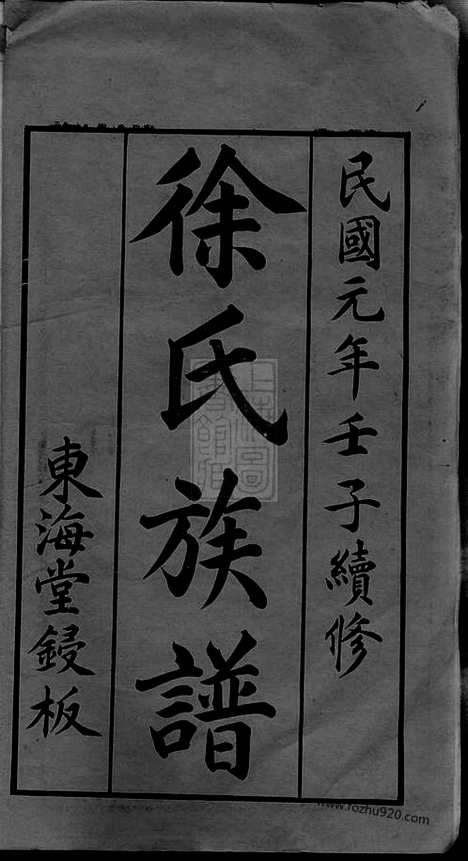 民國元年壬子續修
徐氏族譜
東海堂鋟板
www.fozhu920.com